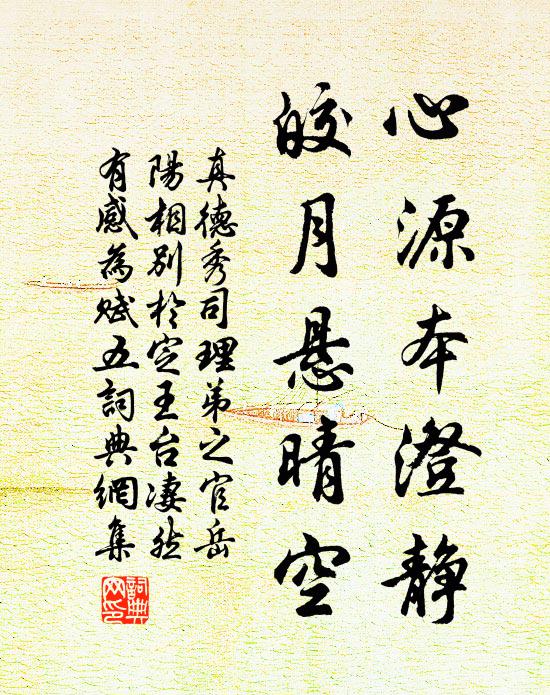 心源本澄静
皎月悬晴空
真德秀司理弟之官岳
陽相別於定王台凄然
有感為赋五詞典網集
詞典网印